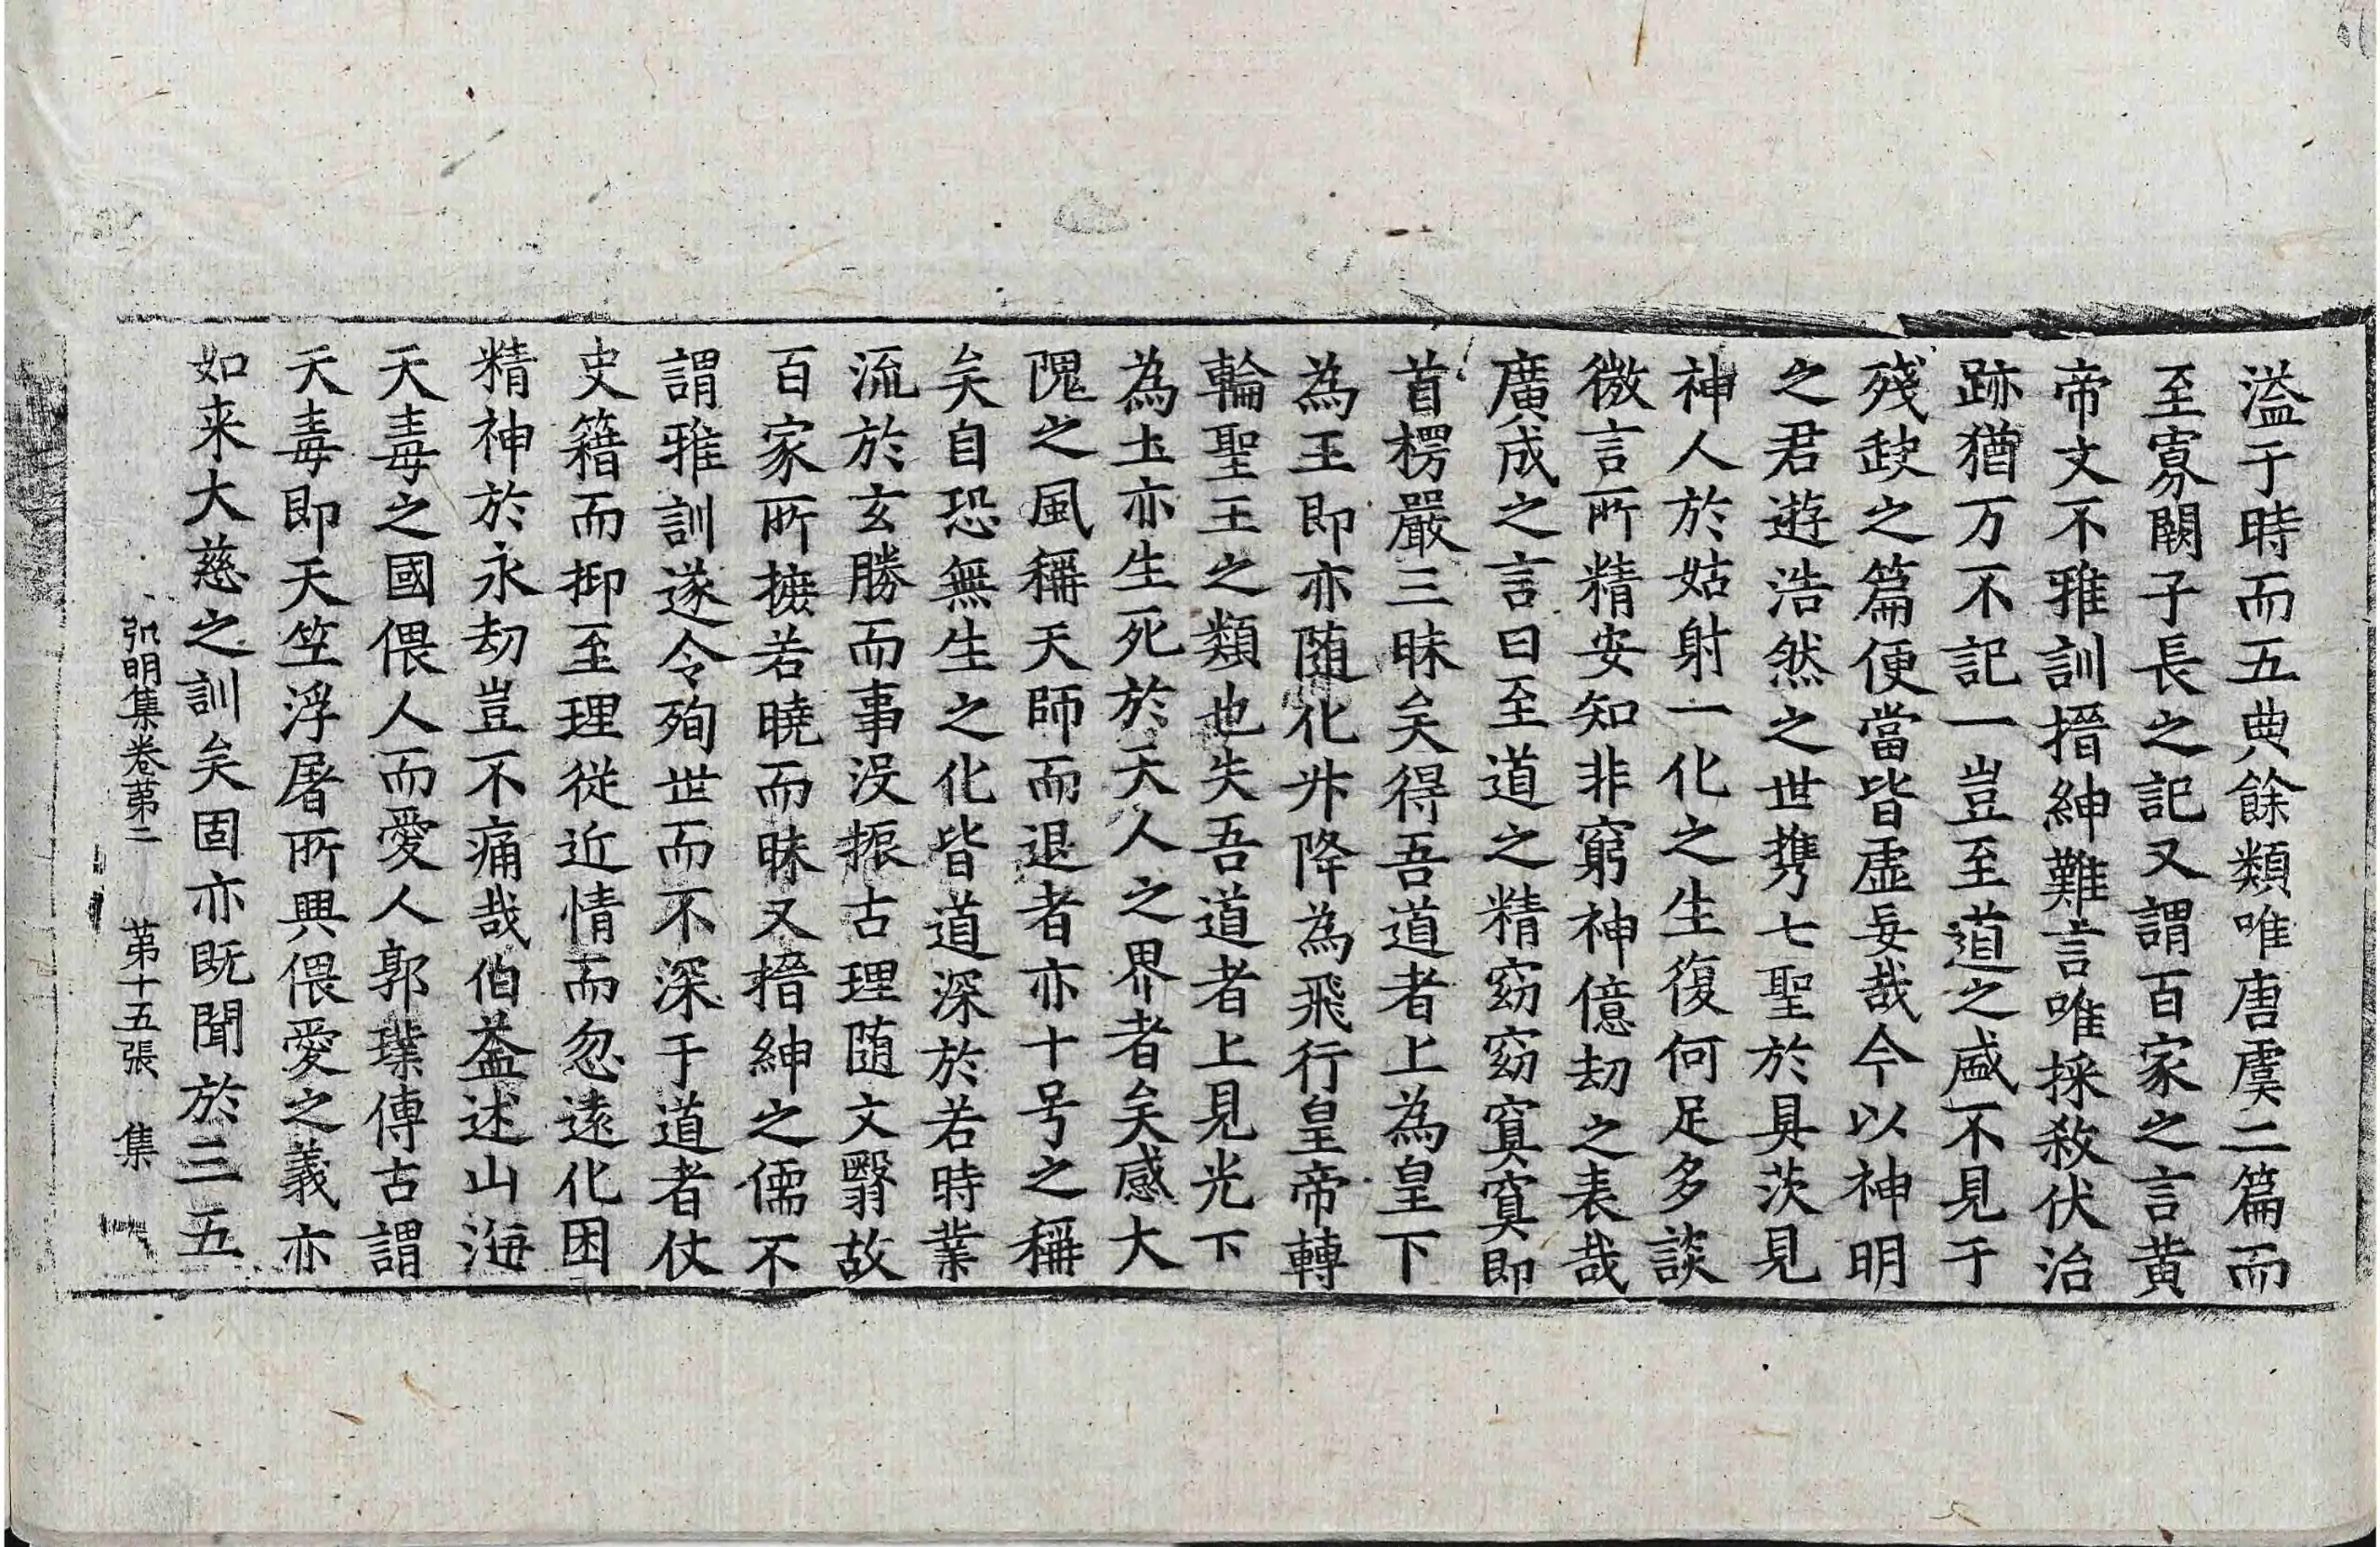 溢于時而五典餘類唯唐虞二篇而
至寡闕子長之記又謂百家之言黃
帝文不雅訓搢紳難言唯採殺伏治
跡猶万不記一豈至道之盛不見于
殘缺之篇便當皆虛妄哉今以神明
之君遊浩然之世携七聖於具茨見
神人於姑射一化之生復何足多談
微言所精安知非窮神億劫之表哉
廣成之言曰至道之精窈窈冥冥即
首楞嚴三昧矣得吾道者上為皇下
為王即亦随化升降為飛行皇帝轉
輪聖王之類也失吾道者上見光下
為土亦生死於天人之界者矣感大
隗之風稱天師而退者亦十号之稱
矣自恐無生之化皆道深於若時業
流於玄勝而事没振古理随文翳故
百家所摭若曉而昧又搢紳之儒不
謂雅訓遂令殉世而不深于道者仗
史籍而抑至理從近情而忽遠化困
精神於永劫豈不痛哉伯益述山海
天毒之國偎人而愛人郭璞傳古謂
天毒即天竺浮屠所興偎愛之義亦
如来大慈之訓矣固亦既聞於三五
弘明集卷苐二 苐十五張 集